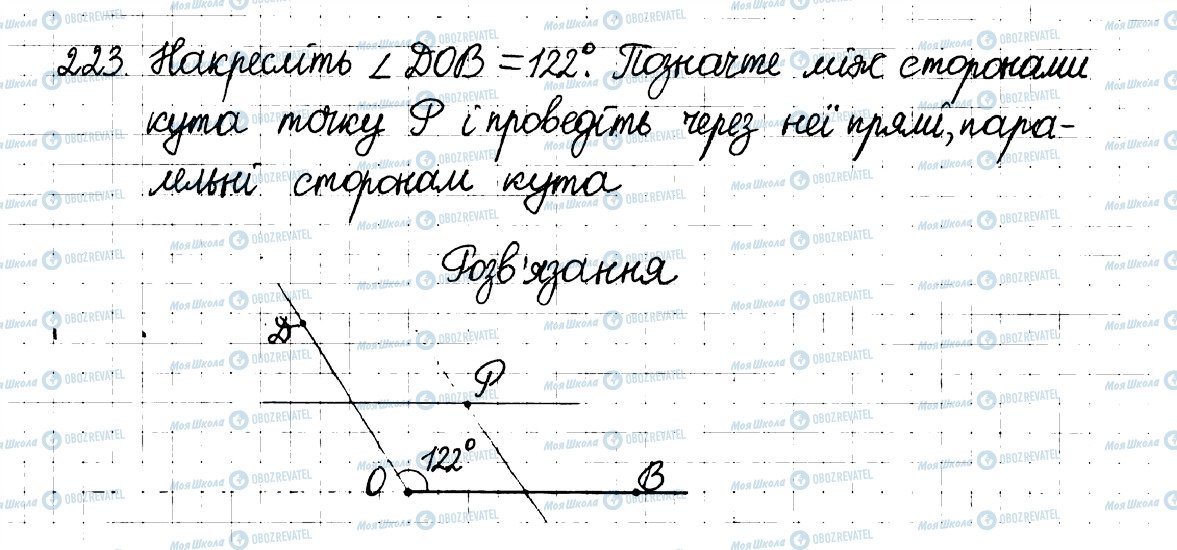 223. Накресліть ∠ DOB = 122°. Позначте між сторонами
кута точку P і проведіть через неї прямі, пара-
лельні сторонам кута
Розв'язання
D
P
O 122° B
МояШкола OBOZREVATEL